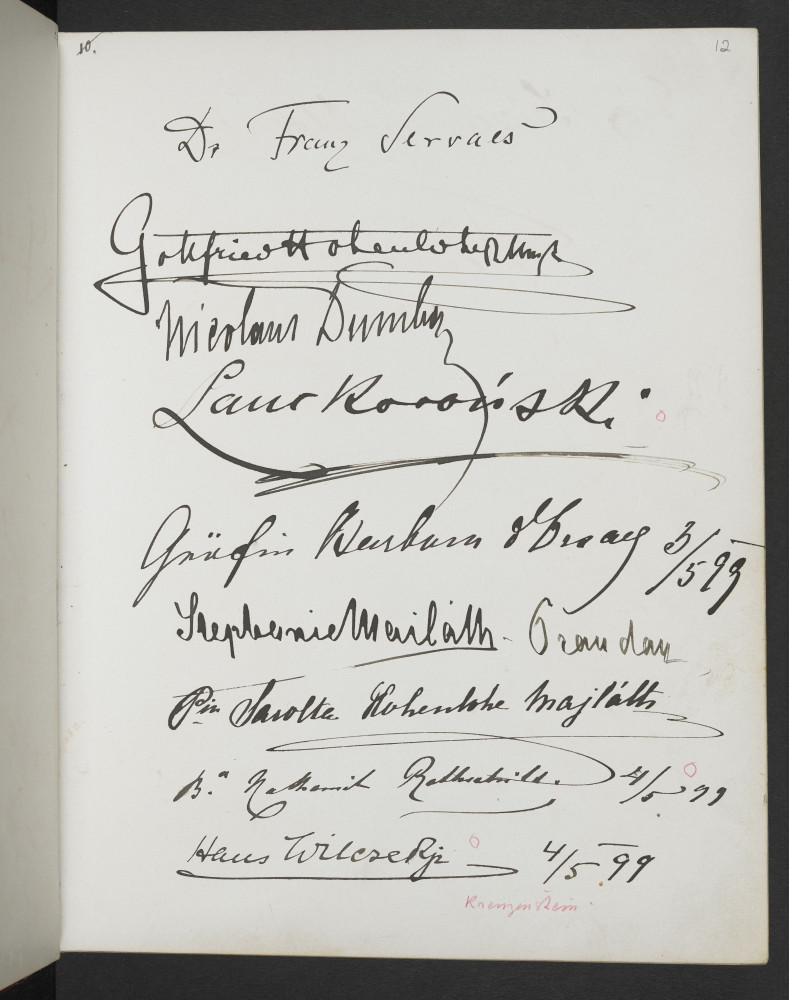 10.
12
Dr Franz Servaes
Gottfried Hohenlohe
Nicolaus Dumba
Lanckoroński.
Gräfin Barbara 3/5 99
Stephanie Mailáth -
Pin Sarolta Hohenlohe Majláth
Bon Nathaniel Rothschild. 4/5 99
Hans Wilczek jr 4/5 99
Kreuzenstein.